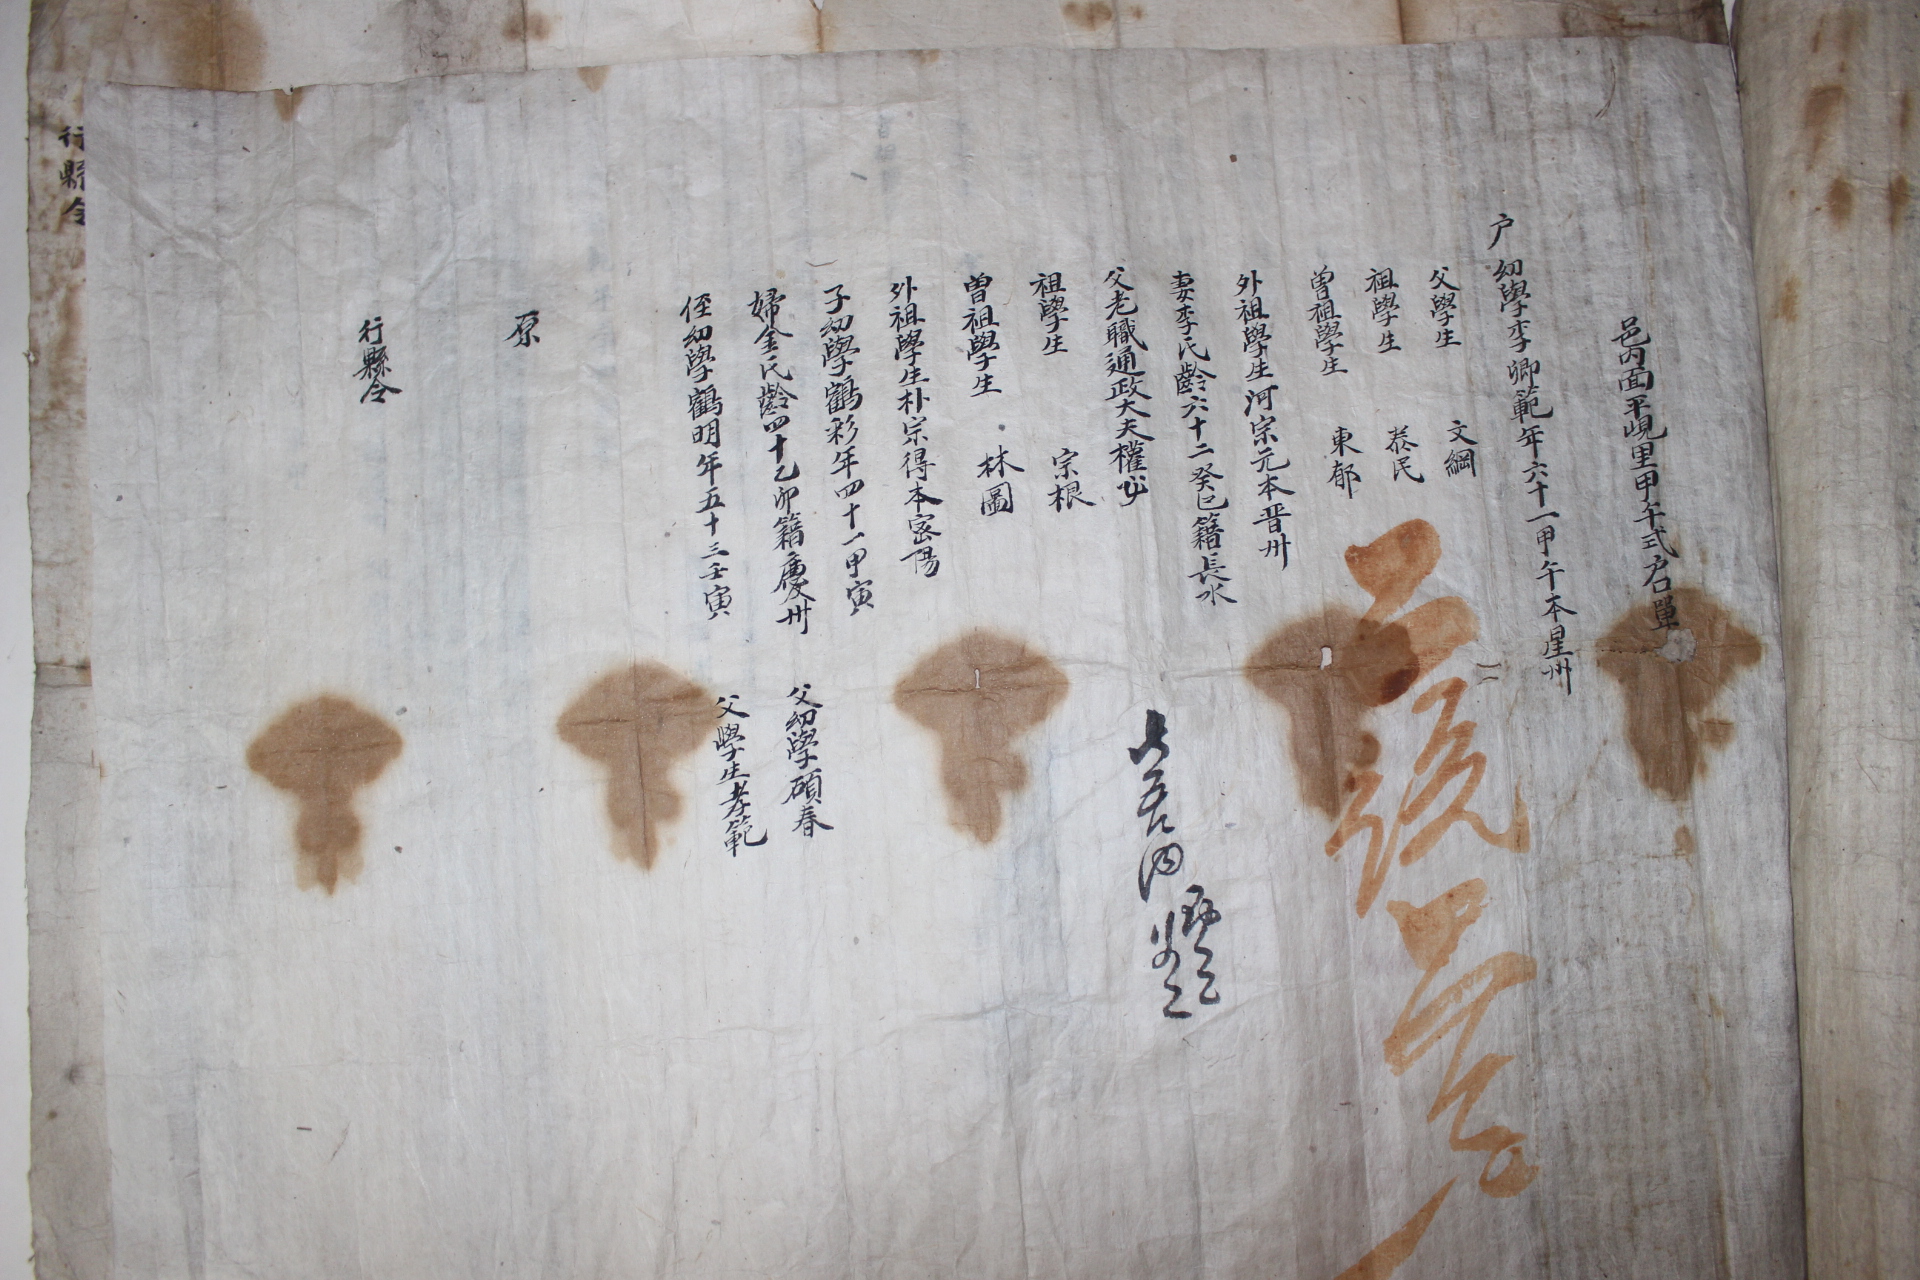 邑內面平峴里甲午式戶口單
戶 幼學李卿範年六十一甲午本星州
父學生 文綱
祖學生 泰民
曾祖學生 東郁
外祖學生河宗元本晋州
妻李氏齡六十二癸巳籍長水
父老職通政大夫權
祖學生 宗根
曾祖學生 林圖
外祖學生朴宗得本密陽
子幼學鶴彩年四十一甲寅
婦金氏齡四十乙卯籍慶州 父幼學碩春
侄幼學鶴明年五十三壬寅 父學生孝範
原
行縣令
行縣令